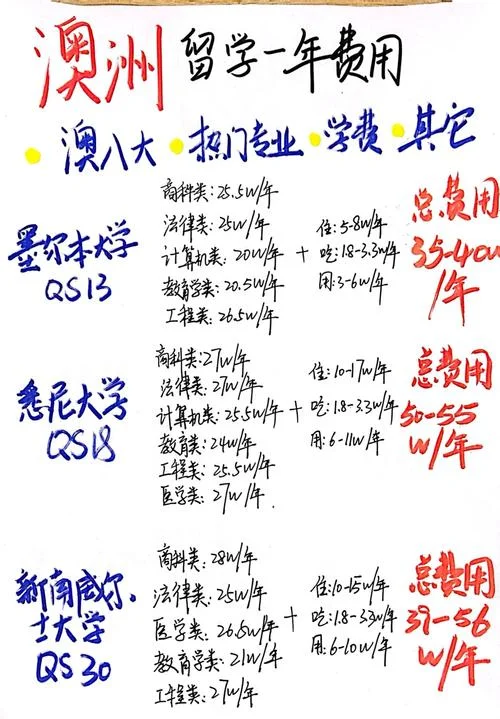 澳洲 留学一年费用
·澳八大·热门专业·学费·其它
墨尔本大学
QS13
商科类:25.5w/年
法律类:25w/年
计算机类:20w/年
教育学类:20.5w/年
工程类:26.5w/年
+
住:5-8w/年
吃:1.8-3.3w/年
用:3-6w/年
总费用
35-40w
/年
悉尼大学
QS18
商科类:27w/年
法律类:27w/年
计算机类:25.5w/年
教育类:24w/年
工程类:25.5w/年
医学类:27w/年
+
住:10-17w/年
吃:1.8-3.3w/年
用:6-11w/年
总费用
50-55
w/年
新南威尔
士大学
QS30
商科类:28w/年
法律类:25w/年
医学类:26.5w/年
教育学类:21w/年
工程类:27w/年
+
住:10-15w/年
吃:1.8-3.3w/年
用:6-10w/年
总费用
39-56
w/年